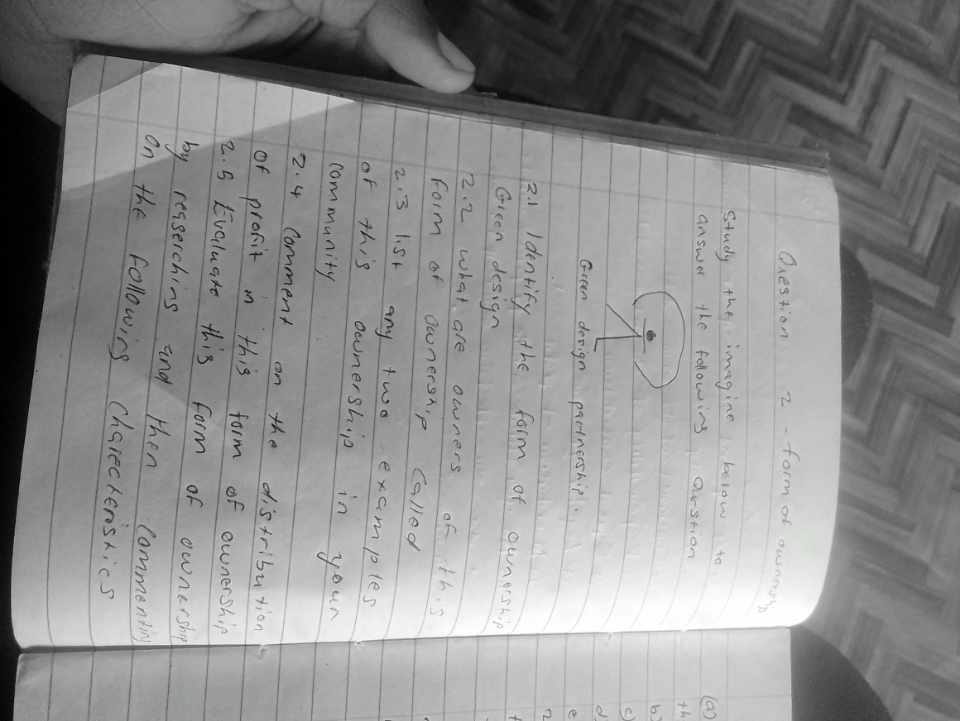 Question 2 - form of ownership
Study the imagine below to
answer the following Qestion
Green design partnership.
2.1 Identify the form of ownership
Green design
2.2 what are owners of this
form of ownership called
2.3 list any two examples
of this ownership in your
community
2.4 comment on the distribution
of profit in this form of ownership
2.5 Evaluate this form of ownership
by reaserching and then commenting
on the following charecteristics
(a)
th
b)
c)
d
e
2